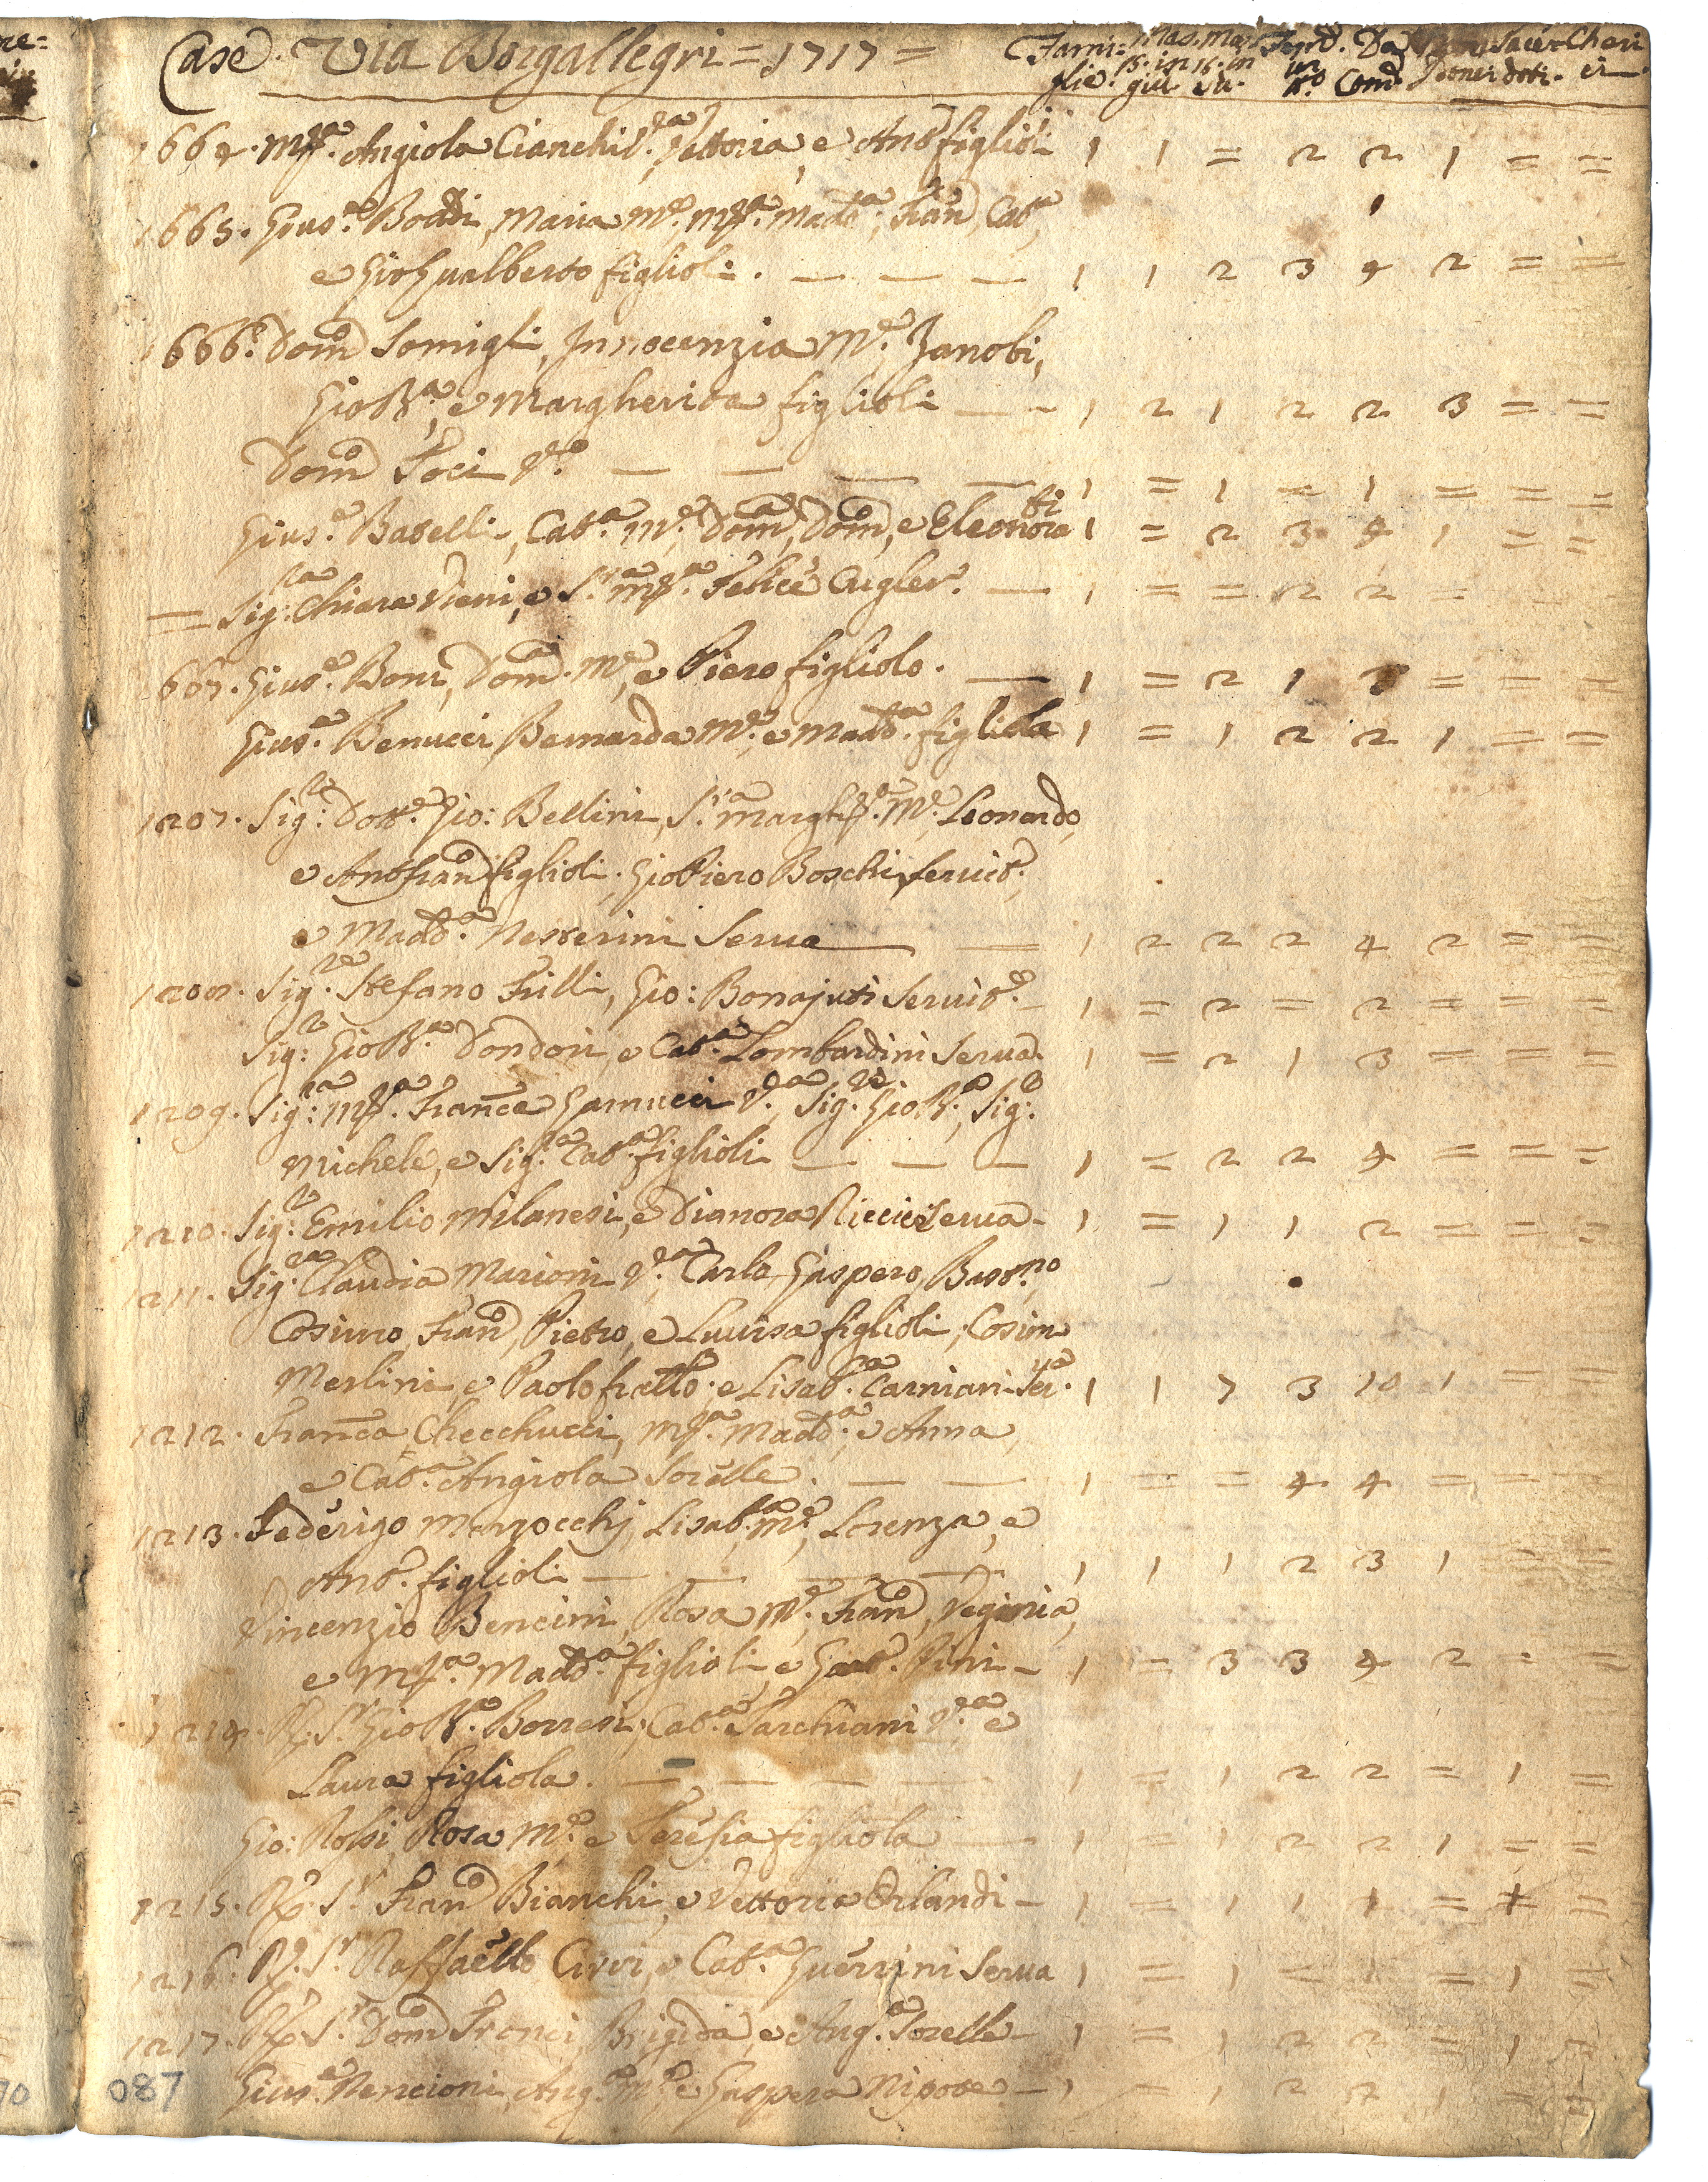 Case. Via Borgallegri = 1717 = Fami= Mas. Mas. Fem. Da Non Sacer= Cheri
glie. 15. in 15. in in Com. Comu dotti. ci
giu. Su. N.o
1664. M.ª Angiola Cianchi V.ª Vettoria, e Ant.o figlioli 1 1 = 2 2 1 = =
1665. Gius.e Boddi, Maria M.e, M.ª Madd.ª, Fran.co, Cat.ª,
e Gio Gualberto figlioli . — — — 1 1 2 3 4 2 = =
1666. Dom.co Somigli, Innocenzia M.e, Zanobi,
Gio Bt.ª, e Margherita figlioli — - 1 2 1 2 2 3 = =
Dom.co Foci V.o — — — — 1 = 1 = 1 = = =
Gius.e Batelli, Cat.ª M.e, Dom.ca, Dom.co, e Eleonora fi 1 = 2 3 4 1 = =
= Sig.ra Chiara Dieni, e S.ra M.ª Felice Cugler. — 1 = = 2 2 =
1667. Gius.e Boni, Dom.ca M.e, e Piero figliolo. — 1 = 2 1 = = =
Gius.e Benucci, Bernarda M.e, e Madd.ª figliola 1 = 1 2 2 1 = =
1207. Sig.re Dott.e Gio: Bellini, S.ra Margh.ta M.e, Leonardo,
e Ant.o Fran.co figlioli. Gio Piero Boschi servit.e,
e Madd.ª Nesterini Serva — = 1 2 2 2 4 2 = =
1208. Sig.re Stefano Frilli, Gio: Bonajuti Servit.e - 1 = 2 = 2 = = =
Sig.r Gio Bt.ª Dondori, e Cat.ª Lombardini Serva. 1 = 2 1 3 = = =
1209. Sig.ra M.ª Fran.ca Gamucci V.ª, Sig.re Gio Bt.ª, Sig.r
Michele, e Sig.ra Cat.ª figlioli — — — 1 = 2 2 4 = = =
1210. Sig.r Emilio Milanesi, e Dianora Ricci Serva - 1 = 1 1 2 = = =
1211. Sig.ra Claudia Marioni V.ª, Carlo, Gaspero, Bast.no,
Cosimo, Fran.co, Pietro, e Luisa figlioli; Cosimo
Merlini, e Paolo fratello. e Lisab.ta Carniani Ser.va 1 1 7 3 10 1 = =
1212. Fran.ca Checchucci, M.ª Madd.ª, e Anna,
e Cat.ª Angiola Sorelle. — — 1 = = 4 4 = = =
1213. Federigo Marzocchj, Lisab.ta M.e, Lorenza, e
Ant.o figlioli — — — — 1 1 1 2 3 1 = =
Vincenzio Bencini, Rosa M.e, Fran.co, Verginia,
e M.ª Madd.ª figlioli, e Pini - 1 = 3 3 4 2 = =
1214. R. S.r Gio Bt.ª Borresi, Cat.ª Sarchiani V.ª e
Laura figliola. — — — 1 = 1 2 2 = 1 =
Gio: Rossi, Rosa M.e, e Teresia figliola — 1 = 1 2 2 1 = =
1215. R. S.r Fran.co Bianchi, e Vettoria Orlandi - 1 = 1 1 1 = 1 =
1216. R. S.r Raffaello Civi, e Cat.ª Guerrini Serva 1 = 1 = 1 =
1217. R. S.r Dom.co Franci, Brigida, e Ang.ª Sorelle - 1 = 1 2 2 = 1 =
Gius.e Nencioni, Ang.ª M.e, e Gaspera Nipote - 1 = 1 2 2 1 = =
087